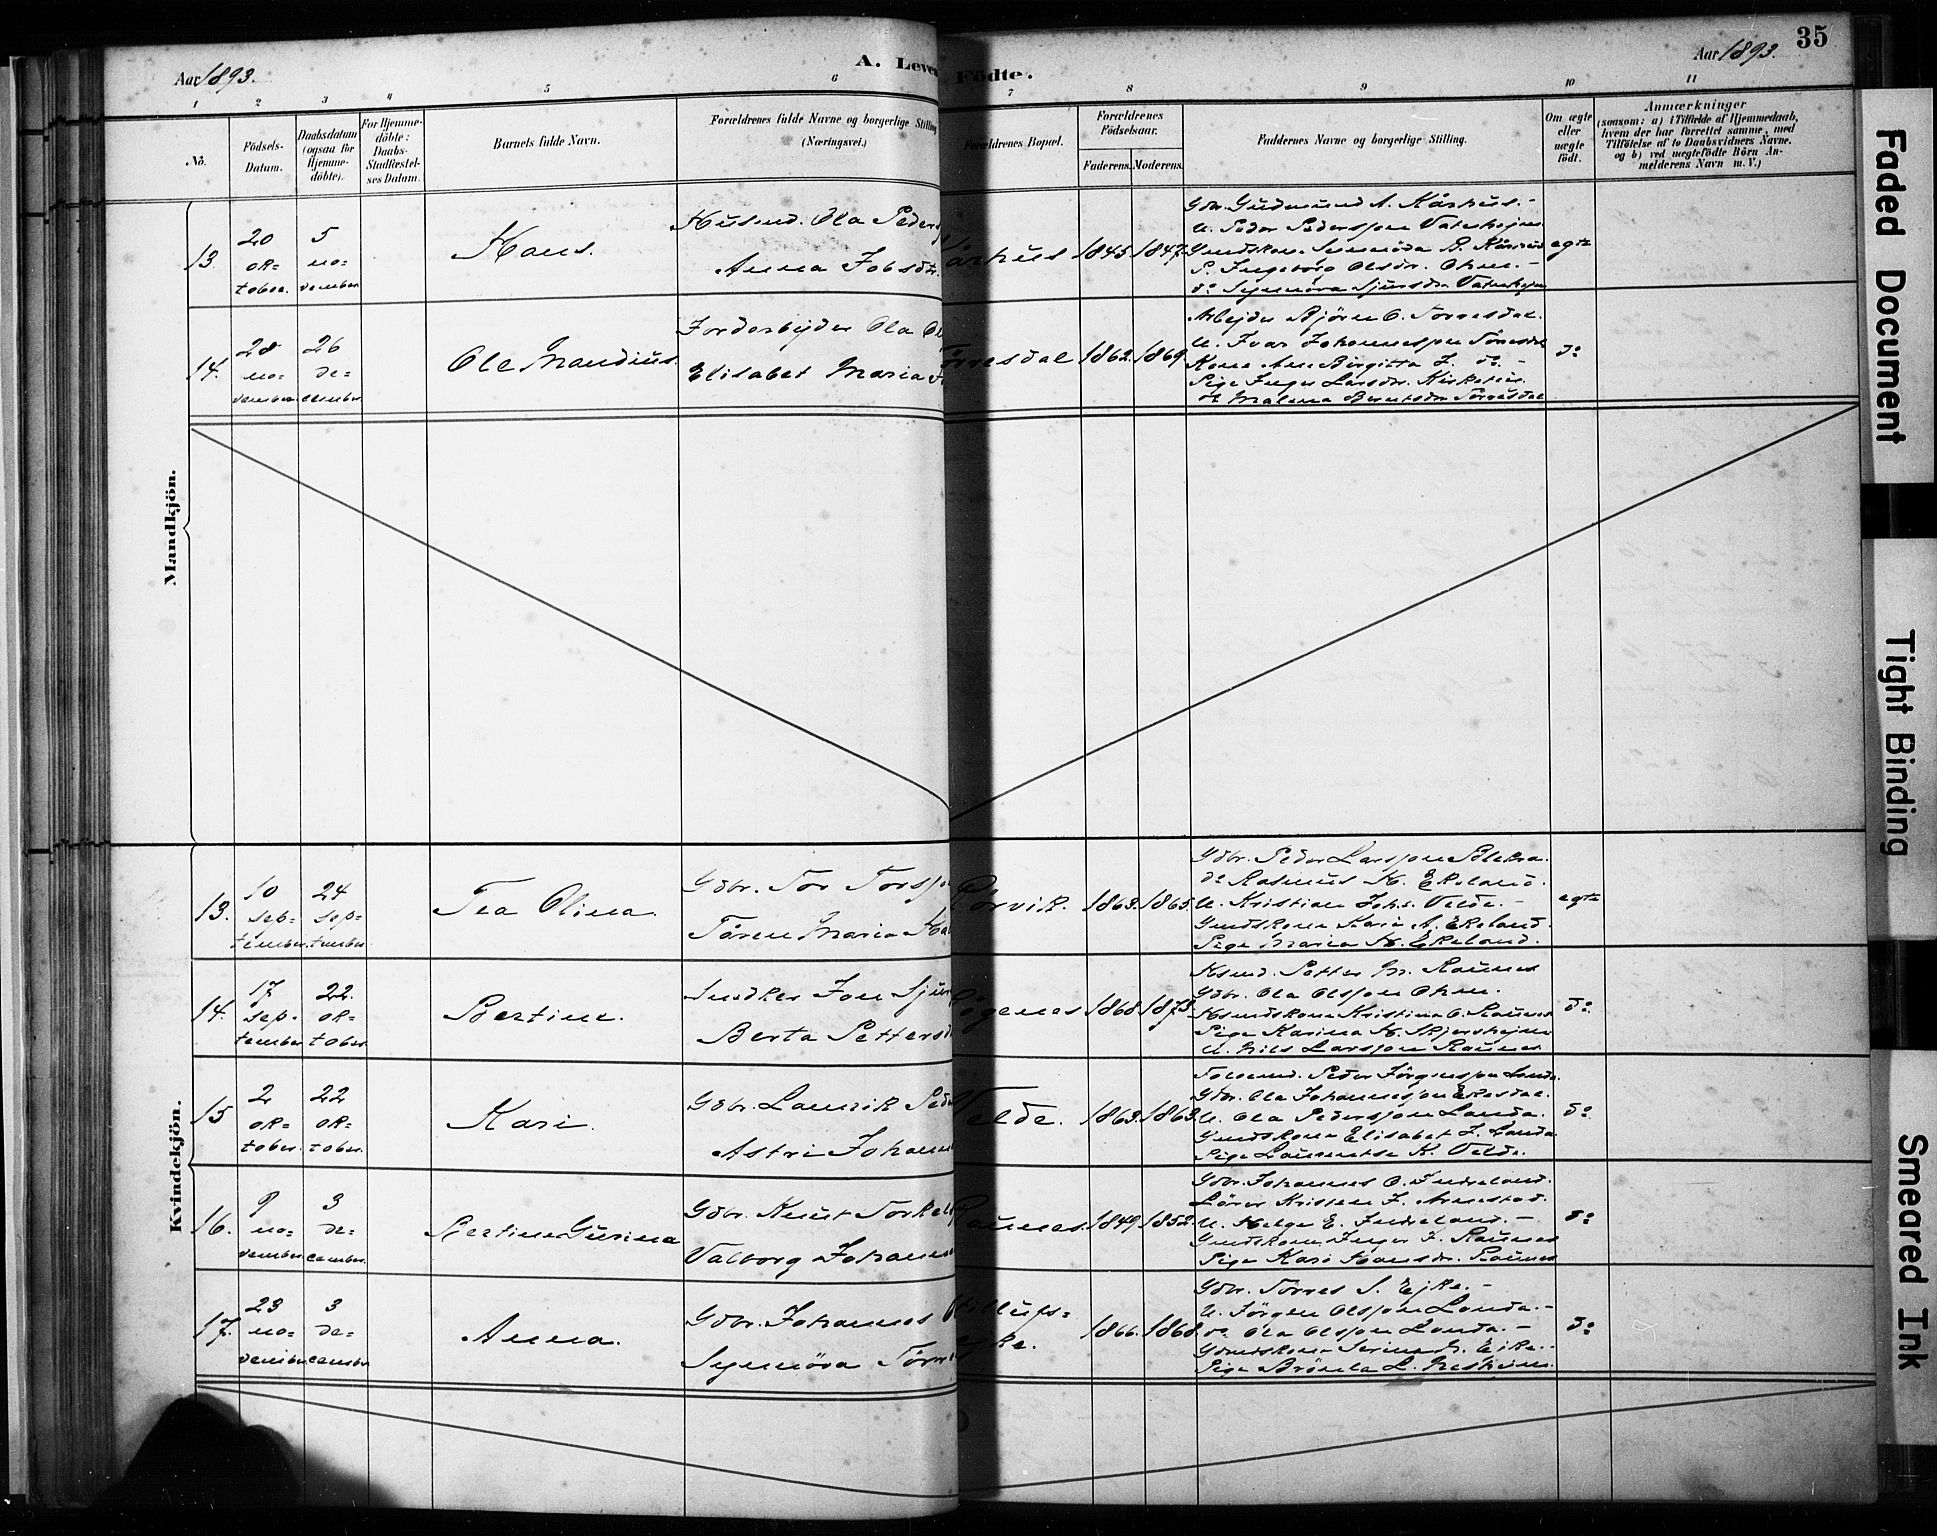 Aar 1893.
A. Leven
Födte.
Aar 1893.
35
1 2 3 4 5 6 7 8 9 10 11
No.
Födsels-
Datum.
Daabsdatum
(ogsaa for
Hjemme-
döbte).
For Hjemme-
döbte:
Daabs-
Stadfæstel-
ses Datum.
Barnets fulde Navn.
Forældrenes fulde Navne og borgerlige Stilling
(Næringsvei.)
Forældrenes Bopæl.
Forældrenes
Födselsaar.
Faderens. Moderens.
Faddernes Navne og borgerlige Stilling.
Om ægte
eller
uægte
födt.
Anmærkninger
(saasom: a) i Tilfælde af Hjemmedaab,
hvem der har forrettet samme, med
Tilföielse af to Daabsvidners Navne.
og b) ved uægtefödte Börn An-
melderens Navn m. V.)
Mandkjön.
13.
20
ok-
tober.
5
no-
vember
Hans.
Husmd. Ola Peders
Anna Jobsdtr.
1845 1847
Gbr. Gudmund A. Kårhus.-
U. Peder Pedersson
P. Ingeborg Olsdr.
do Synnöva Sjursdr.
egte
14.
28
no-
vember
26
de-
cember
Ole Mandius.
Jordarbejder Ola
Elisabet Maria
Törresdal 1862. 1869.
Arbejder Björn O. Torresdal.
U. Ivar Johannesson Törresdal
Kone Ane Birgitta J. do -
Pige Inger Larsdr.
do Malena Berentsdr. Törresdal
do
Kvindekjön.
13.
10
sep-
tember
24
sep-
tember
Tea Olina.
Gdbr. Tor Torsso
Tören Maria
Rörvik. 1863. 1865.
Gdbr. Peder Larsson
do Rasmus K. Ekeland.
U. Kristian Johs. Velde. -
Gmdskone Karin A. Ekeland.
Pige Maria K. Ekeland.
egte
14.
17
sep-
tember
22.
ok-
tober
Bertine.
Snedker Jon Sjur
Berta Petters
1868 1873
Husmd. Petter M. Raunes
Gdbr. Ola Olsson
Husmdskone Kristina O. Raunes
Pige Karina K.
U. Nils Larsson Raunes
do
15
2
ok-
tober.
22
ok-
tober.
Kari.
Gdbr. Laurik Peder
Astri Johann
Velde. 1863. 1863.
Peder Jörgensson Landa.
Gdbr. Ola Johannesson
U. Ola Pedersson Landa.
Gmdskone Elisabet J. Landa
Pige Lauentse K. Velde.
do
16.
9
no-
vember
3
de-
cember.
Bertine Gurina
Gdbr. Knut Torkels
Valborg Johann
Raunes. 1849. 1852.
Gdbr. Johannes O. Indreland.
Lärer Kristen J.
U. Helge E. Indreland. -
Gmdskone Inger J. Raunes
Pige Kari Hansdr. Raunes
do
17.
23
no-
vember
3
de-
cember
Anna.
Gdbr. Johannes
Synnöva Törres
1866. 1868.
Gdbr. Törres S. Ejke. -
U. Jörgen Olsson Landa. -
do Ola Olsson Landa. -
Gmdskone Serina M. Ejke. -
Pige Brönla L.
do
Faded Document
Tight Binding
Smeared Ink